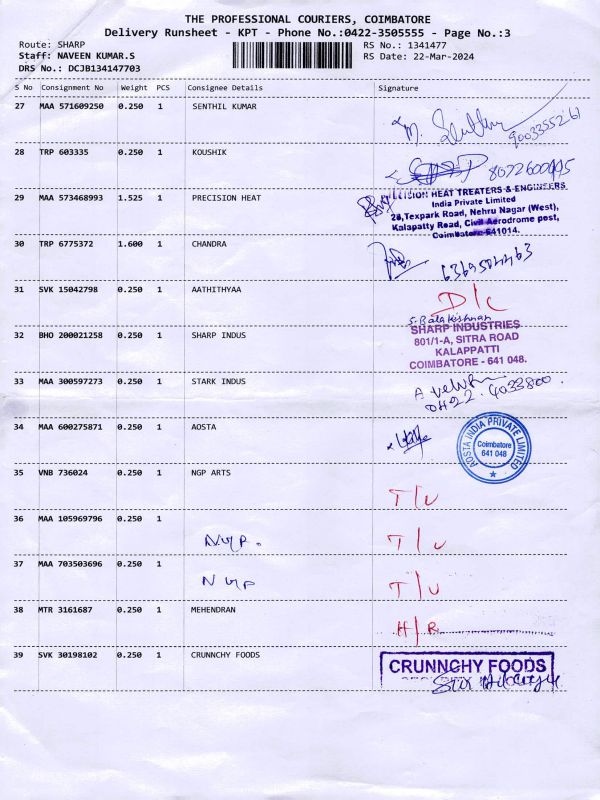 THE PROFESSIONAL COURIERS, COIMBATORE
Delivery Runsheet - KPT - Phone No.:0422-3505555 - Page No.:3
Route: SHARP RS No.: 1341477
Staff: NAVEEN KUMAR.S RS Date: 22-Mar-2024
DRS No.: DCJB134147703
S No Consignment No Weight PCS Consignee Details Signature
27 MAA 571609250 0.250 1 SENTHIL KUMAR
9003355261
28 TRP 603335 0.250 1 KOUSHIK
29 MAA 573468993 1.525 1 PRECISION HEAT
PRECISION HEAT TREATERS & ENGINEERS
India Private Limited
28,Texpark Road, Nehru Nagar (West),
Kalapatty Road, Civil Aerodrome post,
Coimbatore-641014.
30 TRP 6775372 1.600 1 CHANDRA
31 SVK 15042798 0.250 1 AATHITHYAA D/C
S. Balakrishnan
32 BHO 200021258 0.250 1 SHARP INDUS
SHARP INDUSTRIES
801/1-A, SITRA ROAD
KALAPPATTI
COIMBATORE - 641 048.
33 MAA 300597273 0.250 1 STARK INDUS
0422. 4033800.
34 MAA 600275871 0.250 1 AOSTA
AOSTA INDIA PRIVATE LIMITED
Coimbatore
641 048
35 VNB 736024 0.250 1 NGP ARTS T/U
36 MAA 105969796 0.250 1 T/U
37 MAA 703503696 0.250 1 T/U
38 MTR 3161687 0.250 1 MEHENDRAN H/R
39 SVK 30198102 0.250 1 CRUNNCHY FOODS
CRUNNCHY FOODS